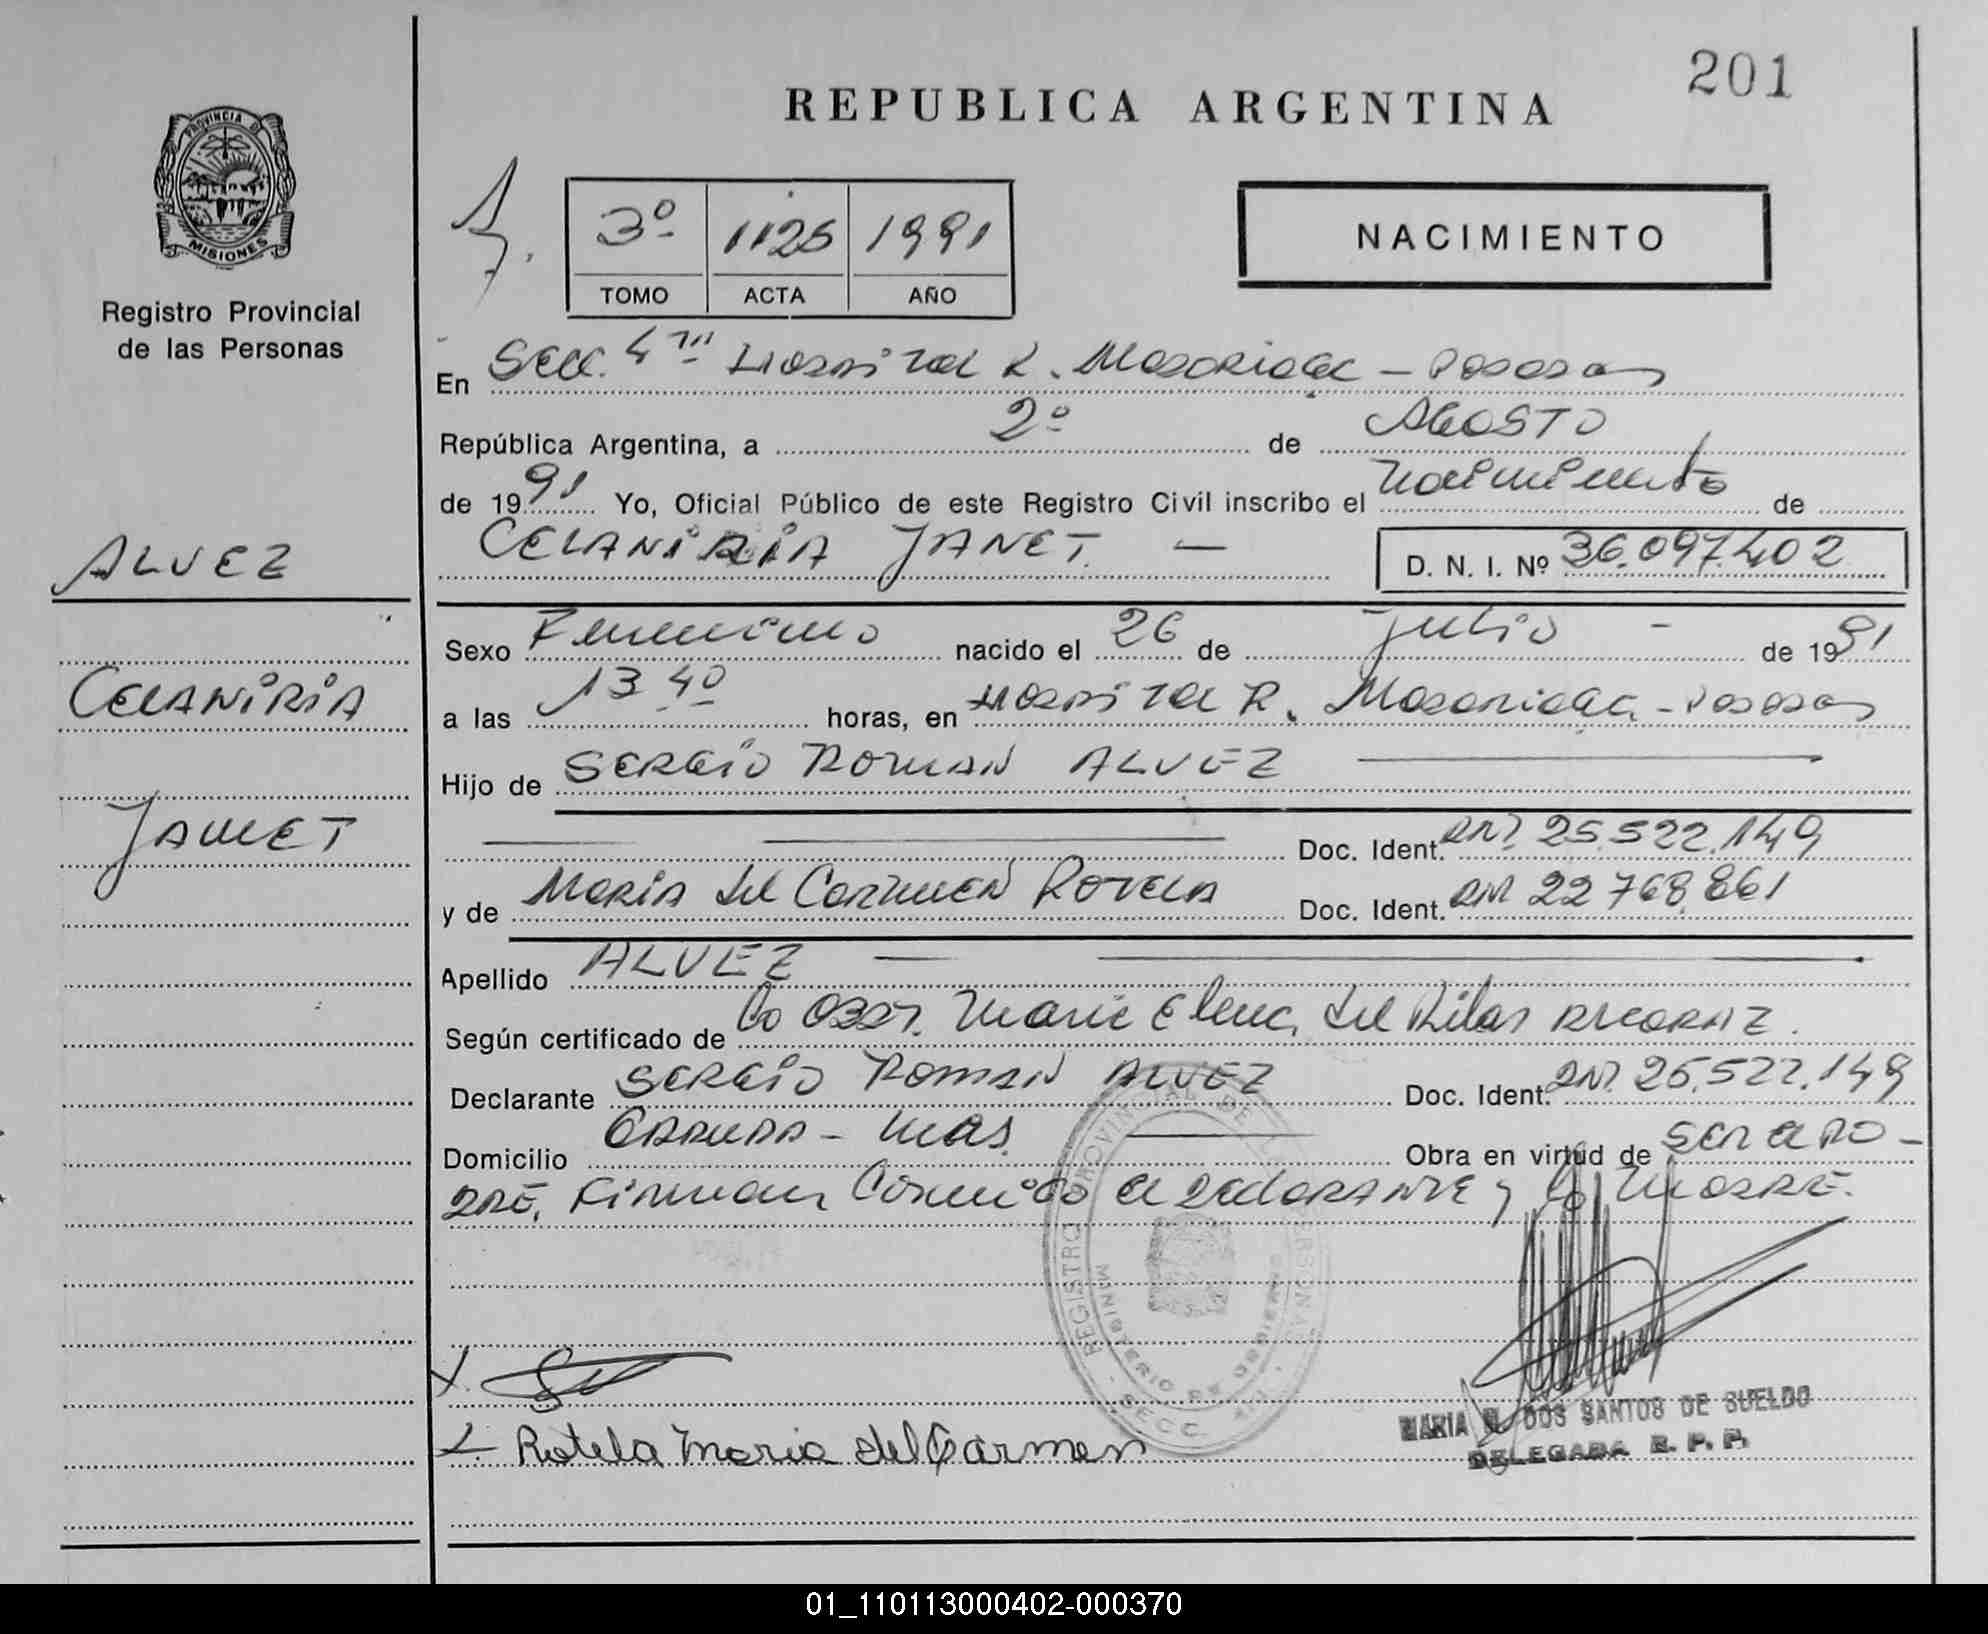 201
REPUBLICA ARGENTINA
PROVINCIA DE
MISIONES
Registro Provincial
de las Personas
3º 1125 1991
TOMO ACTA AÑO
NACIMIENTO
En Secc. 4ta Hospital R. Madariaga - Posadas
República Argentina, a 2º de AGOSTO
de 1991 Yo, Oficial Público de este Registro Civil inscribo el nacimiento de
CELANIRIA JANET. — D. N. I. Nº 36.097.402
ALVEZ
CELANIRIA
JANET
Sexo Femenino nacido el 26 de Julio - de 1991
a las 13 40 horas, en Hospital R. Madariaga - Posadas
Hijo de SERGIO ROMAN ALVEZ
Doc. Ident. DNI 25.522.149
y de MARIA del CARMEN ROTELA Doc. Ident. DNI 22.768.861
Apellido ALVEZ
Según certificado de la Obst. Maria Elena del Pilar
Declarante SERGIO ROMAN ALVEZ Doc. Ident. DNI. 25.522.149
Domicilio - Mns. Obra en virtud de SER EL PA-
DRE, Firman Conmigo el DECLARANTE y la MADRE.
REGISTRO PROVINCIAL DE LAS PERSONAS
MINISTERIO DE GOBIERNO
SECC.
X.
X. Rotela Maria del Carmen
MARIA DOS SANTOS DE SUELDO
DELEGADA R. P. P.
01_110113000402-000370